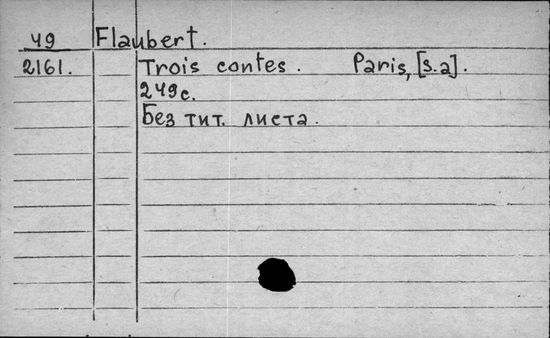 49 Flaubert.
2161. Trois contes. Paris, [s.a].
249 с.
Без тит. листа.